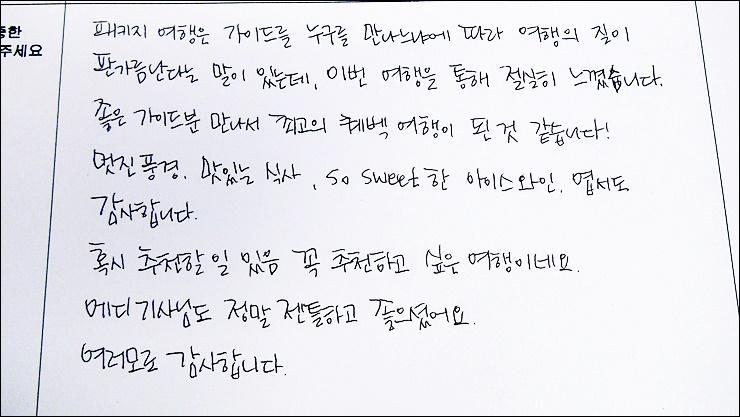 중한
주세요
패키지 여행은 가이드를 누구를 만나느냐에 따라 여행의 질이
판가름난다는 말이 있는데, 이번 여행을 통해 절실히 느꼈습니다.
좋은 가이드분 만나서 최고의 퀘벡 여행이 된 것 같습니다!
멋진 풍경, 맛있는 식사, so sweet한 아이스와인, 엽서도
감사합니다.
혹시 추천할 일 있음 꼭 추천하고 싶은 여행이네요.
에디 기사님도 정말 젠틀하고 좋으셨어요.
여러모로 감사합니다.